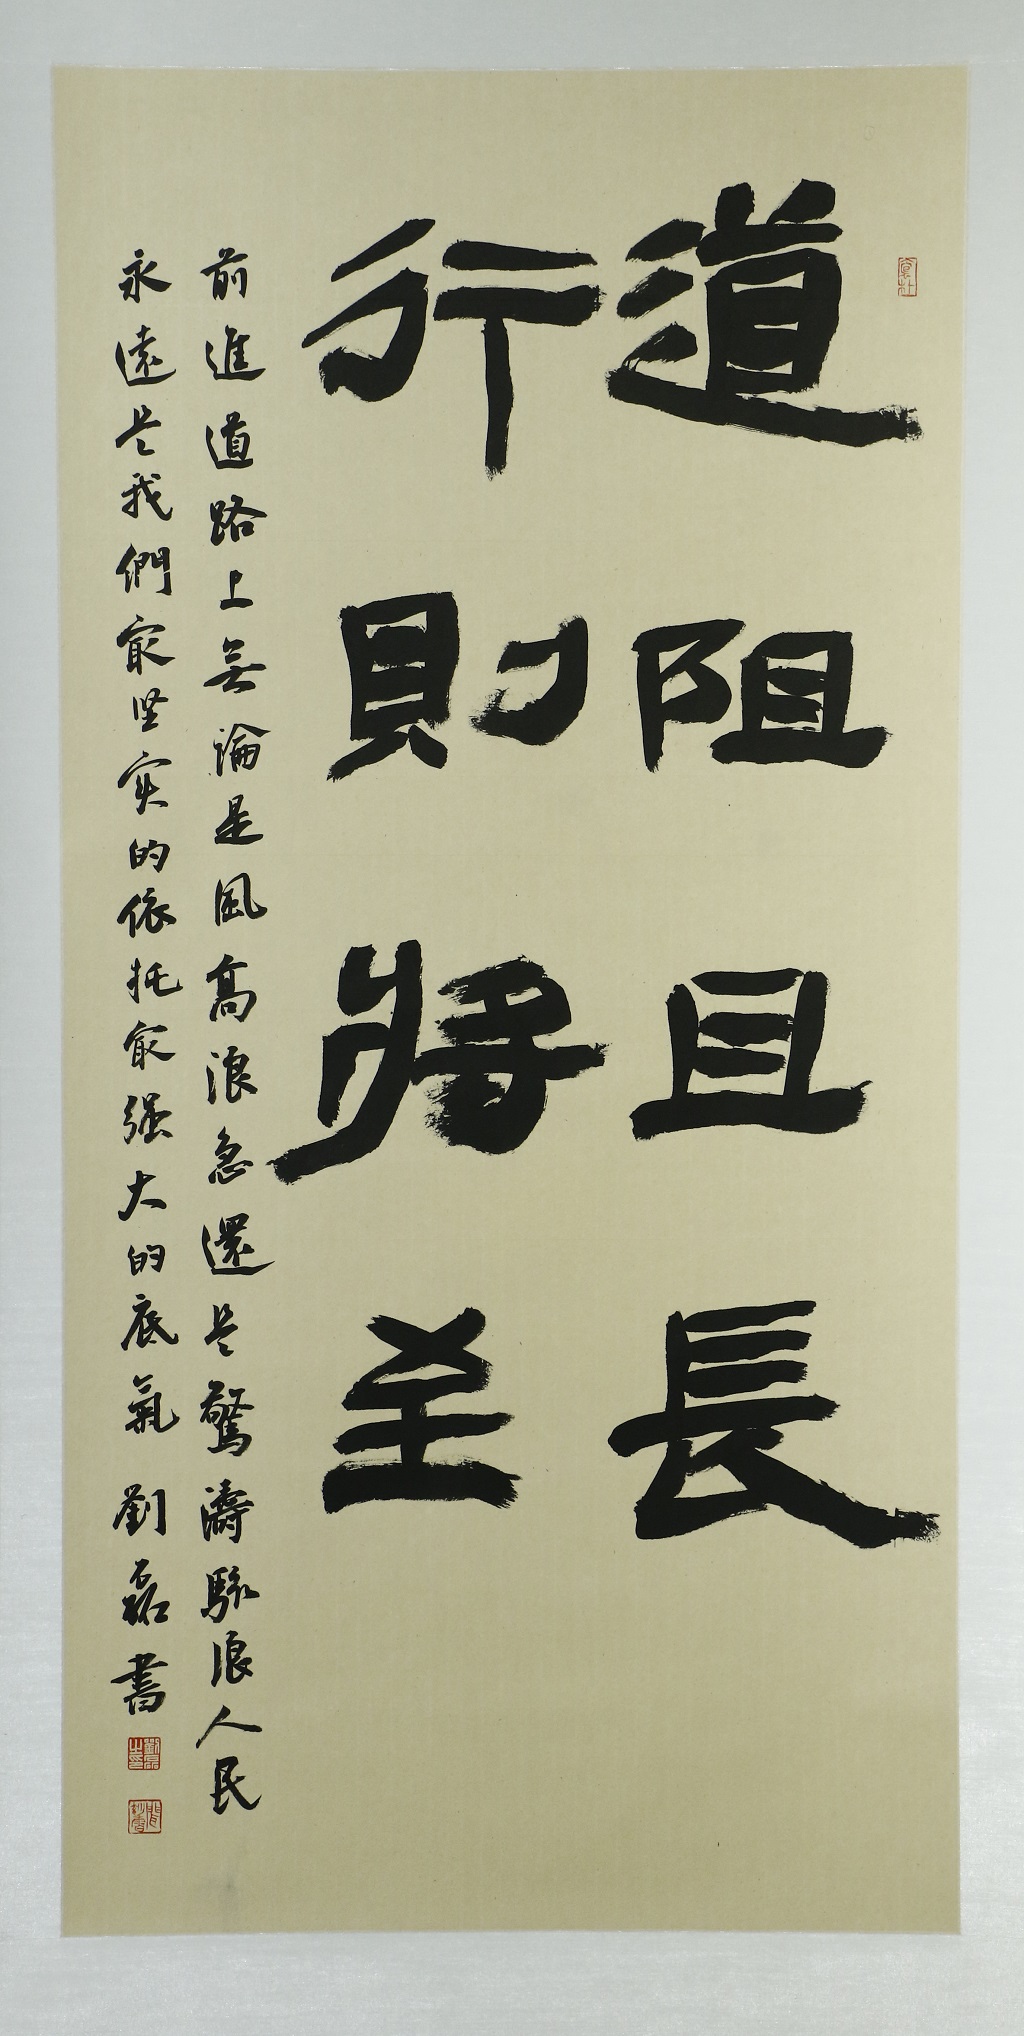 道阻且長
行則將至
前進道路上無論是風高浪急還是驚濤駭浪人民
永遠是我們最坚实的依托最强大的底氣 劉磊書